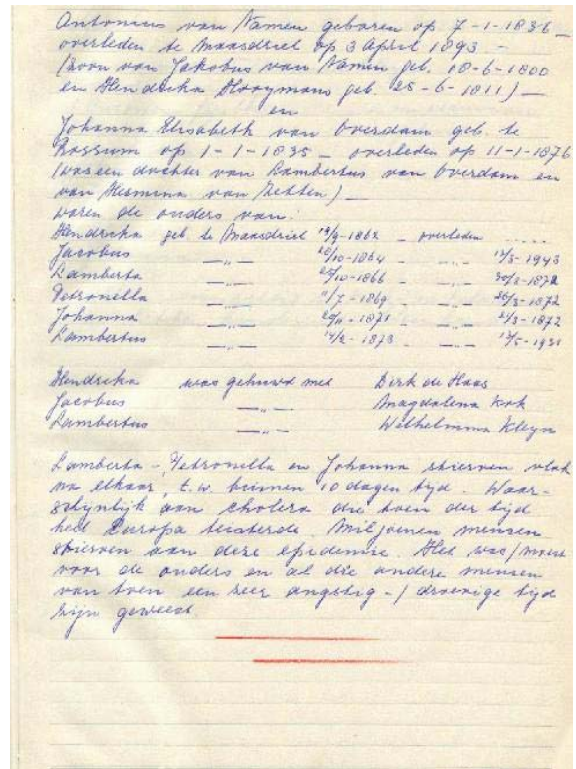 Antonius van Namen geboren op 7-1-1836 –
overleden te Maasdriel op 3 April 1893 –
(zoon van Jakobus van Namen geb. 18-6-1800
en Hendrika Hooymans geb. 28-6-1811) –
en
Johanna Elisabeth van Overdam geb. te
Rossum op 1-1-1835 – overleden op 11-1-1876
(was een dochter van Lambertus van Overdam en
van Hermina van Zetten) –
waren de ouders van:
Hendrika geb. te Maasdriel /9-1862 – overleden .....
Jacobus —„— /10-1864 – —„— /3-1943
Lamberta —„— /10-1866 – —„—
Petronella —„— /7-1869 – —„— /3-1872
Johanna —„— /11-1871 – —„— /3-1872
Lambertus —„— /2-1873 – —„— /5-1931
Hendrika was gehuwd met Dirk de Haas
Jacobus —„— Magdalena Kok
Lambertus —„— Wilhelmina Kleyn
Lamberta – Petronella en Johanna stierven vlak
na elkaar, t.w. binnen 10 dagen tijd. Waar-
schynlyk aan cholera die toen der tijd
heel Europa teisterde. Miljoenen mensen
stierven aan deze epidemie. Het was/moet
voor de ouders en al die andere mensen
van toen een zeer angstig-/droevige tijd
zijn geweest.